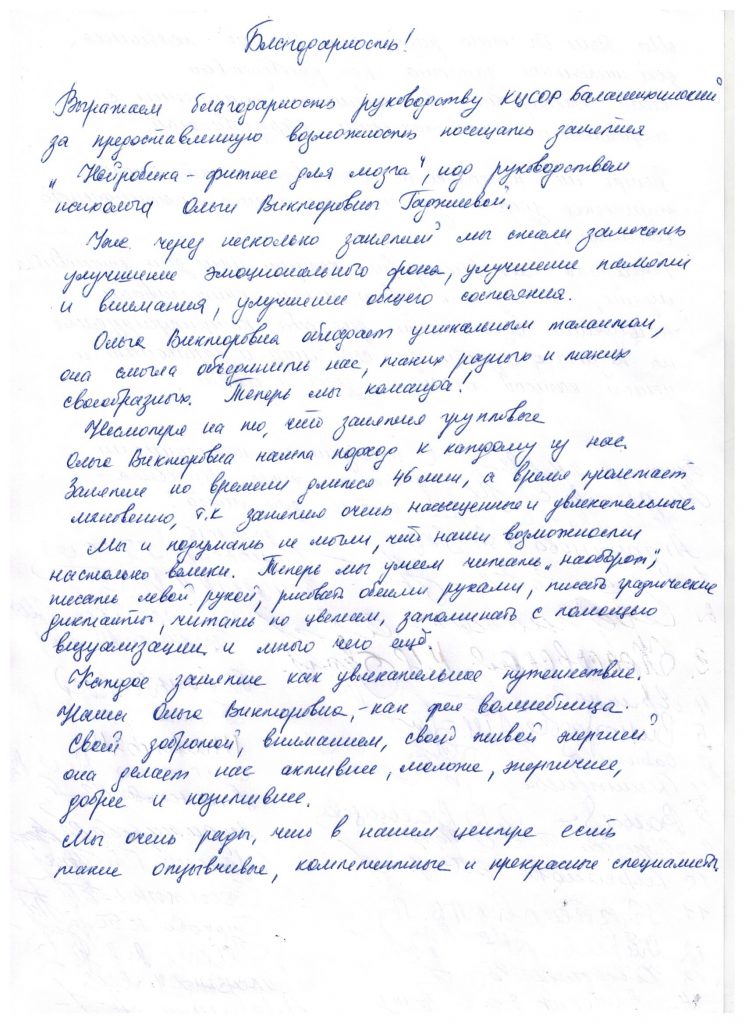 Благодарность!
Выражаем благодарность руководству КЦСОР Балашихинский
за предоставленную возможность посещать занятия
„Нейробика - фитнес для мозга", под руководством
психолога Ольги Викторовны Гаджиевой.
Уже через несколько занятий мы стали замечать
улучшение эмоционального фона, улучшение памяти
и внимания, улучшение общего состояния.
Ольга Викторовна обладает уникальным талантом,
она смогла объединить нас, таких разных и таких
своеобразных. Теперь мы команда!
Несмотря на то, что занятия групповые
Ольга Викторовна нашла подход к каждому из нас.
Занятие по времени длится 46 мин, а время пролетает
мгновенно, т.к занятия очень насыщенные и увлекательные.
Мы и подумать не могли, что наши возможности
настолько велики. Теперь мы умеем читать „наоборот",
писать левой рукой, рисовать обеими руками, писать графические
диктанты, читать по цветам, запоминать с помощью
визуализации и много чего ещё.
Каждое занятие как увлекательное путешествие.
Наша Ольга Викторовна, - как фея волшебница.
Свой добротой, вниманием, своей живой энергией
она делает нас активнее, моложе, энергичнее,
добрее и позитивнее.
Мы очень рады, что в нашем центре есть
такие отзывчивые, компетентные и прекрасные специалисты.